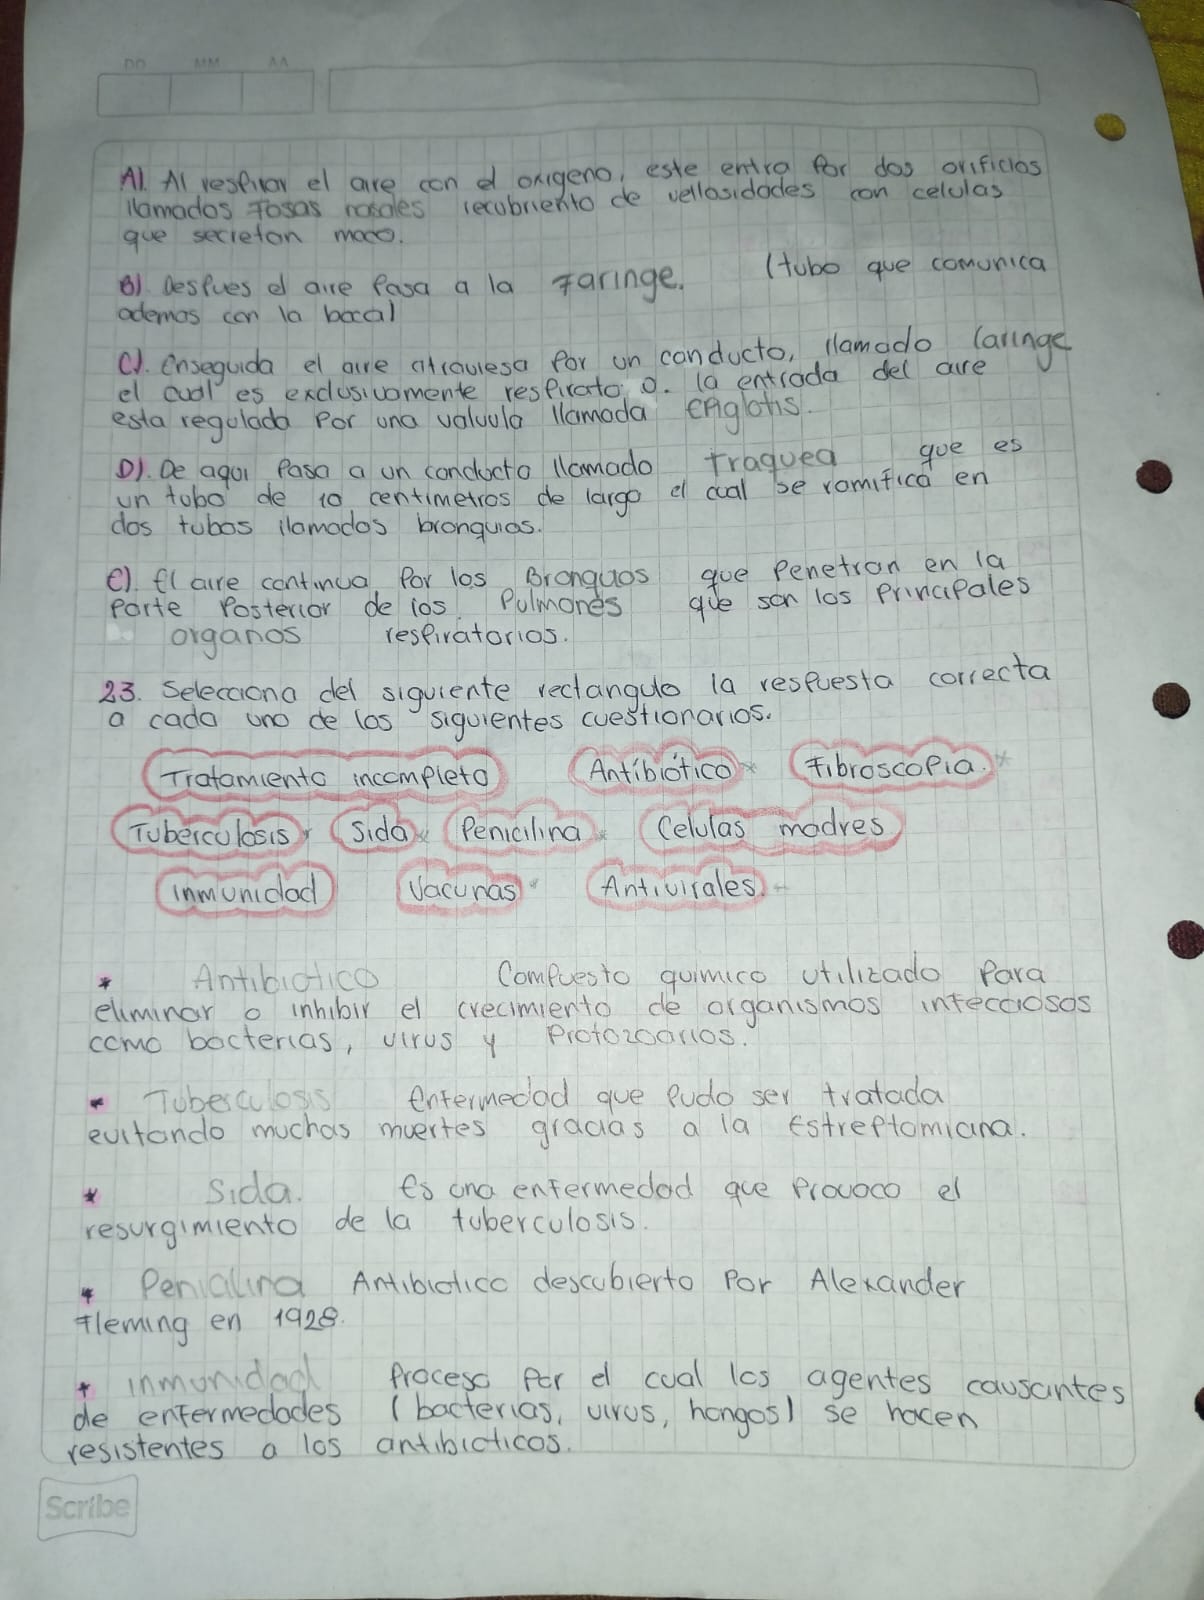 DD MM AA
A). Al respirar el aire con el oxigeno, este entra por dos orificios
llamados Fosas nasales recubriento de vellosidades con celulas
que secretan moco.
B). Despues el aire pasa a la Faringe. (tubo que comunica
ademas con la boca)
C). Enseguida el aire atraviesa por un conducto, llamado laringe
el cual es exclusivamente respirato o. la entrada del aire
esta regulada por una valvula llamada Epiglotis.
D). De aqui pasa a un conducto llamado Traquea que es
un tubo de 10 centimetros de largo el cual se ramifica en
dos tubos llamados bronquios.
E). El aire continua por los Bronquos que penetran en la
parte posterior de los Pulmones que son los principales
organos respiratorios.
23. Selecciona del siguiente rectangulo la respuesta correcta
a cada uno de los siguientes cuestionarios.
Tratamiento incompleto Antibiótico Fibroscopia.
Tuberculosis Sida Penicilina Celulas madres
inmunidad Vacunas Antivirales.
* Antibiotico Compuesto quimico utilizado para
eliminar o inhibir el crecimiento de organismos infecciosos
como bacterias, virus y Protozoarios.
* Tuberculosis Enfermedad que pudo ser tratada
evitando muchas muertes gracias a la Estreptomicina.
* Sida. Es una enfermedad que provoco el
resurgimiento de la tuberculosis.
* Penicilina Antibiotico descubierto por Alexander
Fleming en 1928.
* inmunidad Proceso por el cual los agentes causantes
de enfermedades (bacterias, virus, hongos) se hacen
resistentes a los antibioticos.
Scribe